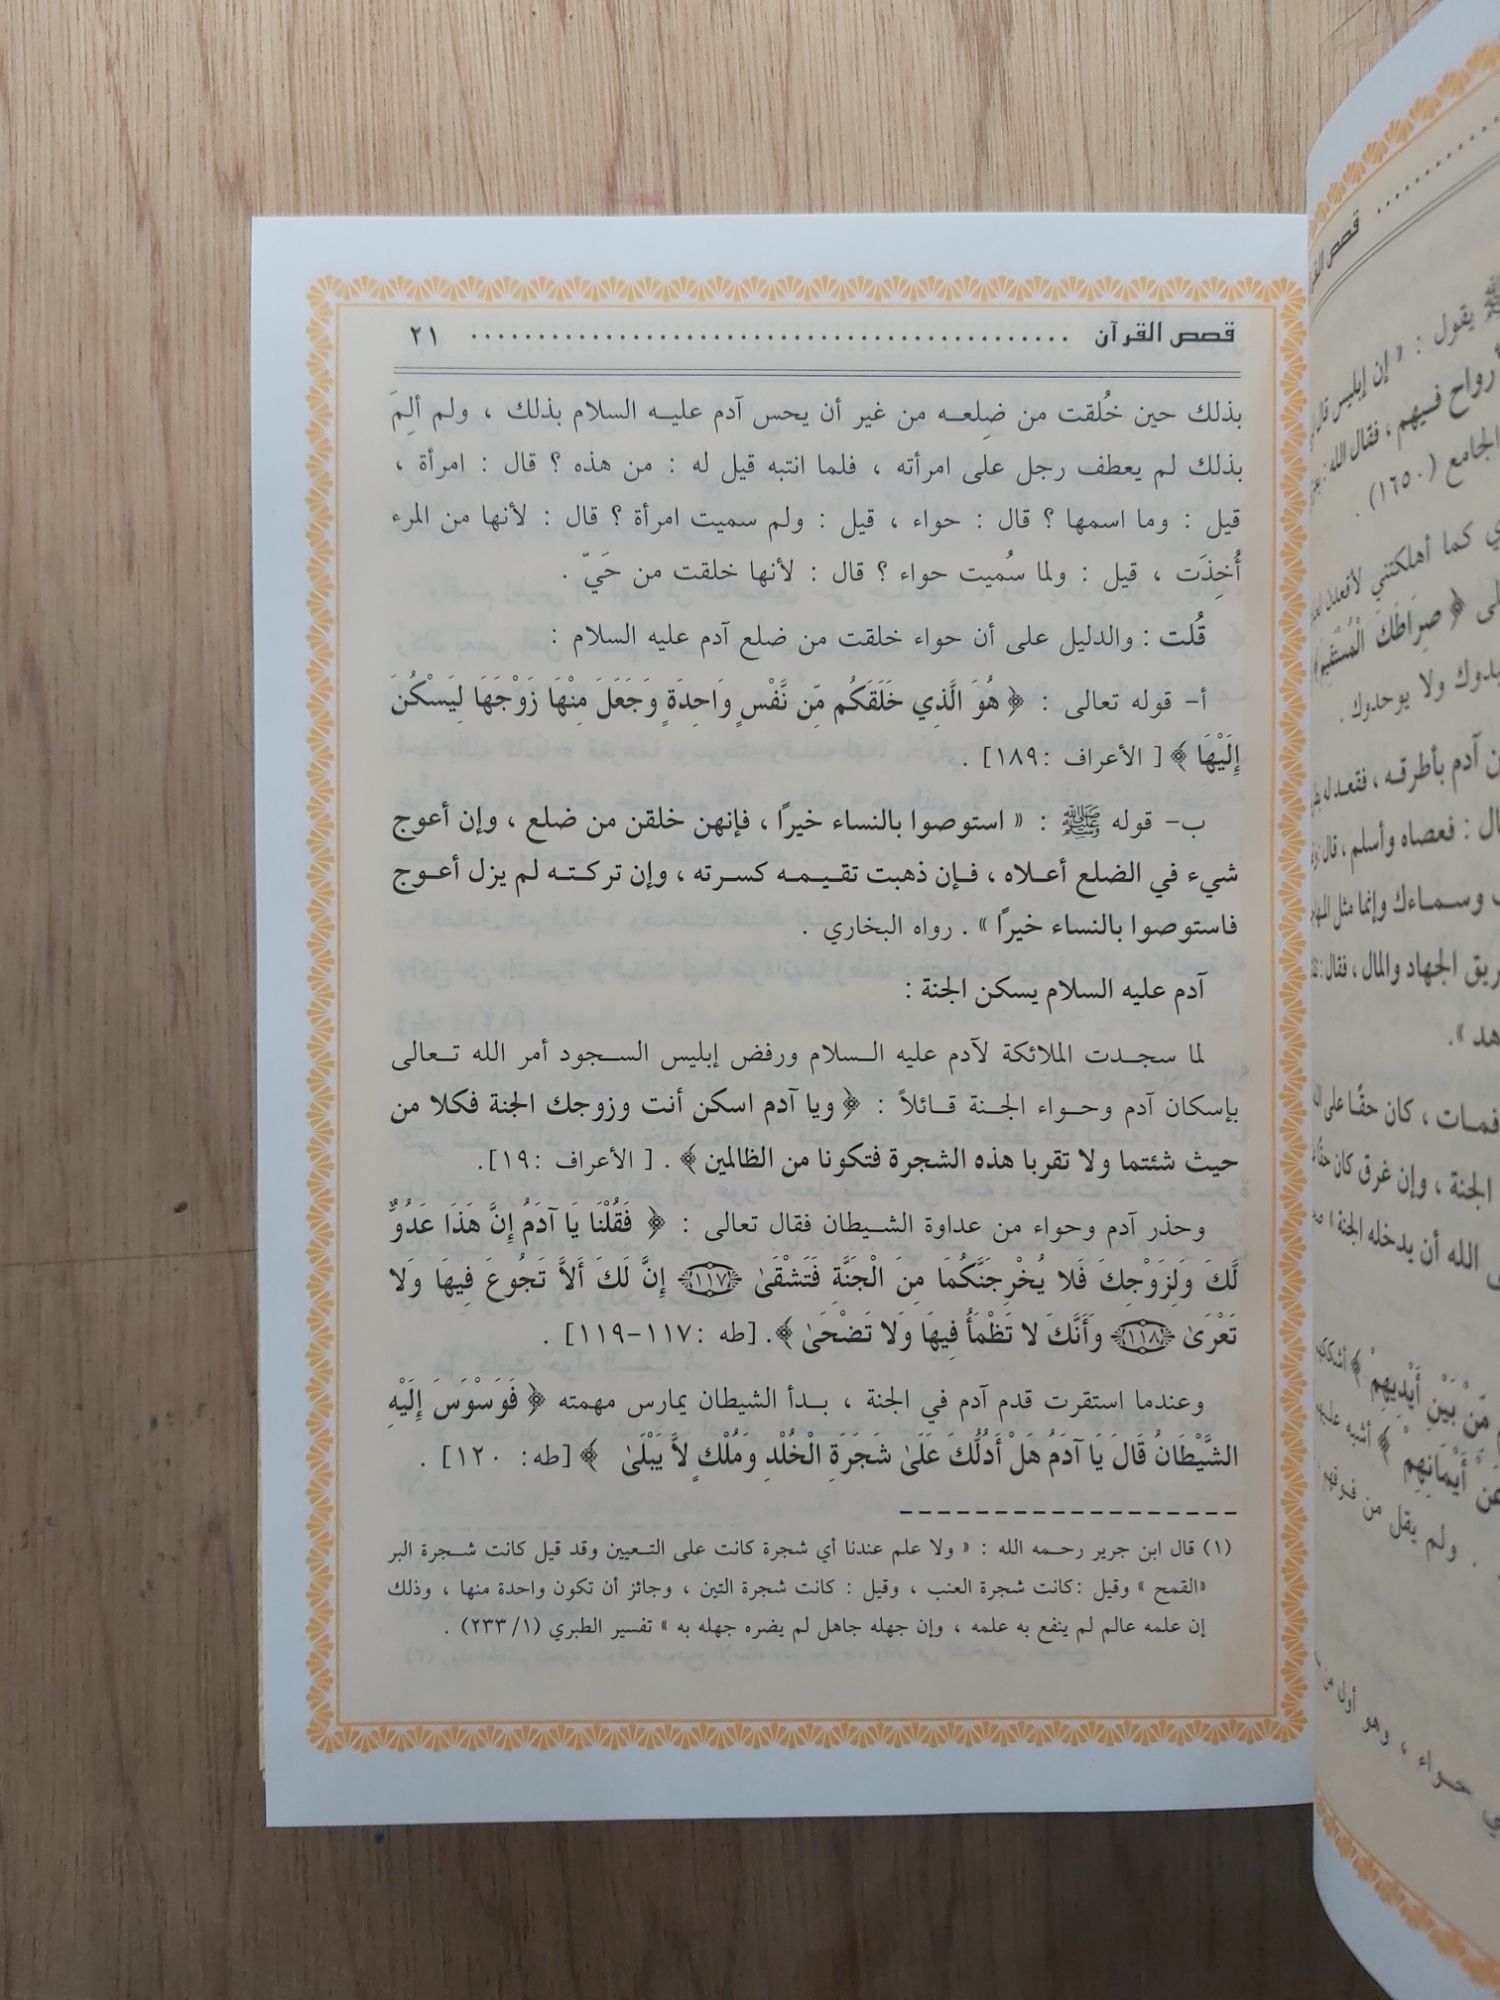 قصص القرآن ................................................ ٢١
بذلك حين خُلقت من ضِلعـه من غير أن يحس آدم عليـه السلام بذلك ، ولم ألِمَ
بذلك لم يعطف رجل على امرأته ، فلما انتبه قيل له : من هذه ؟ قال : امرأة ،
قيل : وما اسمها ؟ قال : حواء ، قيل : ولم سميت امرأة ؟ قال : لأنها من المرء
أُخِذَت ، قيل : ولما سُميت حواء ؟ قال : لأنها خلقت من حَيّ .
قُلت : والدليل على أن حواء خلقت من ضلع آدم عليه السلام :
أ- قوله تعالى : ﴿ هُوَ الَّذِي خَلَقَكُم مِّن نَّفْسٍ وَاحِدَةٍ وَجَعَلَ مِنْهَا زَوْجَهَا لِيَسْكُنَ
إِلَيْهَا ﴾ [ الأعراف :١٨٩] .
ب- قوله ﷺ : « استوصوا بالنساء خيرًا ، فإنهن خلقن من ضلع ، وإن أعوج
شيء في الضلع أعـلاه ، فـإن ذهبت تقيـمـه كسـرته ، وإن تركـتـه لم يزل أعـوج
فاستوصوا بالنساء خيرًا » . رواه البخاري .
آدم عليه السلام يسكن الجنة :
لما سجـدت الملائكة لآدم عليه الـسلام ورفض إبليس السـجود أمر الله تـعالى
بإسكان آدم وحـواء الجـنة قـائلاً : ﴿ ويا آدم اسكن أنت وزوجك الجنة فكلا من
حيث شئتما ولا تقربا هذه الشجرة فتكونا من الظالمين ﴾ . [ الأعراف :١٩].
وحذر آدم وحواء من عداوة الشـيطان فقال تعالى : ﴿ فَقُلْنَا يَا آدَمُ إِنَّ هَذَا عَدُوٌّ
لَّكَ وَلِزَوْجِكَ فَلا يُخْرِجَنَّكُمَا مِنَ الْجَنَّةِ فَتَشْقَىٰ ﴿١١٧﴾ إِنَّ لَكَ أَلاَّ تَجُوعَ فِيهَا وَلا
تَعْرَىٰ ﴿١١٨﴾ وَأَنَّكَ لا تَظْمَأُ فِيهَا وَلا تَضْحَىٰ ﴾. [طه :١١٧-١١٩] .
وعندما استقرت قدم آدم في الجنة ، بـدأ الشيطان يمارس مهمته ﴿ فَوَسْوَسَ إِلَيْهِ
الشَّيْطَانُ قَالَ يَا آدَمُ هَلْ أَدُلُّكَ عَلَىٰ شَجَرَةِ الْخُلْدِ وَمُلْكٍ لاَّ يَبْلَىٰ ﴾ [طه: ١٢٠] .
(١) قال ابن جرير رحـمه الله : « ولا علم عندنا أي شجرة كانت على التـعيين وقد قيل كانت شـجرة البر
«القمح » وقيل :كانت شجرة العنب ، وقيل : كانت شجرة التين ، وجائز أن تكون واحدة منها ، وذلك
إن علمه عالم لم ينفع به علمه ، وإن جهله جاهل لم يضره جهله به » تفسير الطبري (١/ ٢٣٣) .
يقول : « إن إبليس قال
أرواح فـيهم ، فقال الله :
الجامع (١٦٥٠) .
كما أهلكتني لأقعدن
﴿ صِرَاطَكَ الْمُسْتَقِيمَ ﴾
ولا يوحدوك .
آدم بأطرقـه ، فقعـد له
: فعصاه وأسلم ، قال
وسـماءك وإنما مثل
الجهاد والمال ، فقال :
فمات ، كان حقًا على
الجنة ، وإن غرق كان
الله أن يدخله الجنة
مِّنْ بَيْنِ أَيْدِيهِمْ ﴾
عَنْ أَيْمَانِهِمْ ﴾
. ولم يقل من فوقهم
حـواء ، وهو أول من